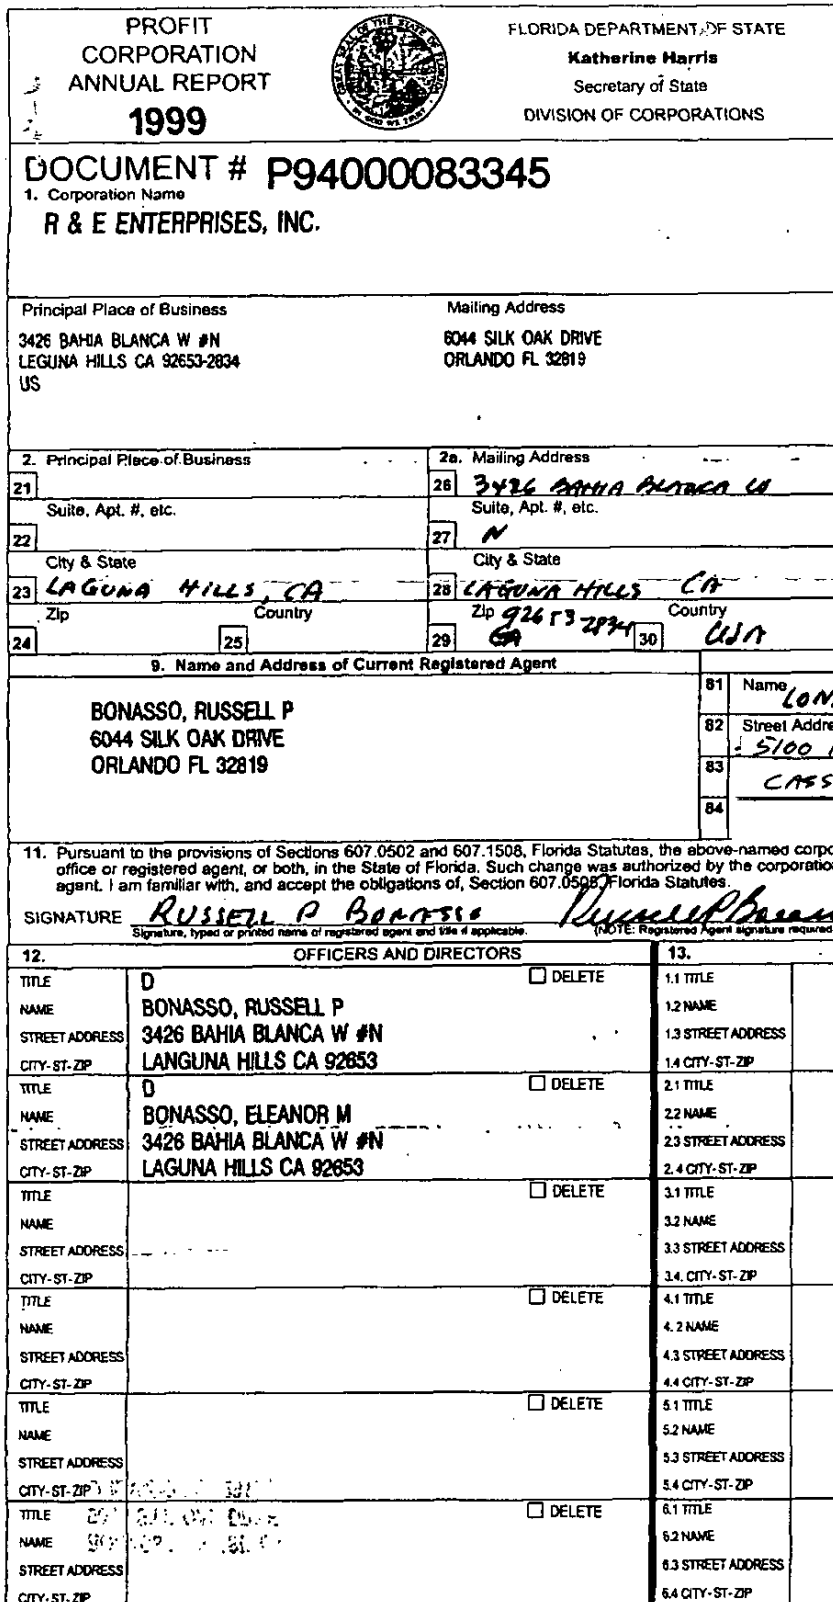 PROFIT
CORPORATION
ANNUAL REPORT
1999
GREAT SEAL OF THE STATE OF FLORIDA
IN GOD WE TRUST
FLORIDA DEPARTMENT OF STATE
Katherine Harris
Secretary of State
DIVISION OF CORPORATIONS
DOCUMENT # P94000083345
1. Corporation Name
R & E ENTERPRISES, INC.
Principal Place of Business
3426 BAHIA BLANCA W #N
LEGUNA HILLS CA 92653-2834
US
Mailing Address
6044 SILK OAK DRIVE
ORLANDO FL 32819
2. Principal Place of Business
2a. Mailing Address
21
26 3426 BAHIA BLANCA W
Suite, Apt. #, etc.
Suite, Apt. #, etc.
22
27 N
City & State
City & State
23 LAGUNA HILLS, CA
28 LAGUNA HILLS CA
Zip
Country
Zip 92653-2834
Country
24
25
29
30 USA
9. Name and Address of Current Registered Agent
BONASSO, RUSSELL P
6044 SILK OAK DRIVE
ORLANDO FL 32819
81 Name
82 Street Addre
5100
83 CASS
84
11. Pursuant to the provisions of Sections 607.0502 and 607.1508, Florida Statutes, the above-named corpo
office or registered agent, or both, in the State of Florida. Such change was authorized by the corporatio
agent. I am familiar with, and accept the obligations of, Section 607.0505, Florida Statutes.
SIGNATURE RUSSELL P BONASSO Russell P Bonasso
Signature, typed or printed name of registered agent and title if applicable.
(NOTE: Registered Agent signature required
12. OFFICERS AND DIRECTORS
13.
TITLE D DELETE
NAME BONASSO, RUSSELL P
STREET ADDRESS 3426 BAHIA BLANCA W #N
CITY-ST-ZIP LANGUNA HILLS CA 92653
1.1 TITLE
1.2 NAME
1.3 STREET ADDRESS
1.4 CITY-ST-ZIP
TITLE D DELETE
NAME BONASSO, ELEANOR M
STREET ADDRESS 3426 BAHIA BLANCA W #N
CITY-ST-ZIP LAGUNA HILLS CA 92653
2.1 TITLE
2.2 NAME
2.3 STREET ADDRESS
2.4 CITY-ST-ZIP
TITLE DELETE
NAME
STREET ADDRESS
CITY-ST-ZIP
3.1 TITLE
3.2 NAME
3.3 STREET ADDRESS
3.4. CITY-ST-ZIP
TITLE DELETE
NAME
STREET ADDRESS
CITY-ST-ZIP
4.1 TITLE
4.2 NAME
4.3 STREET ADDRESS
4.4 CITY-ST-ZIP
TITLE DELETE
NAME
STREET ADDRESS
CITY-ST-ZIP
5.1 TITLE
5.2 NAME
5.3 STREET ADDRESS
5.4 CITY-ST-ZIP
TITLE DELETE
NAME
STREET ADDRESS
CITY-ST-ZIP
6.1 TITLE
6.2 NAME
6.3 STREET ADDRESS
6.4 CITY-ST-ZIP